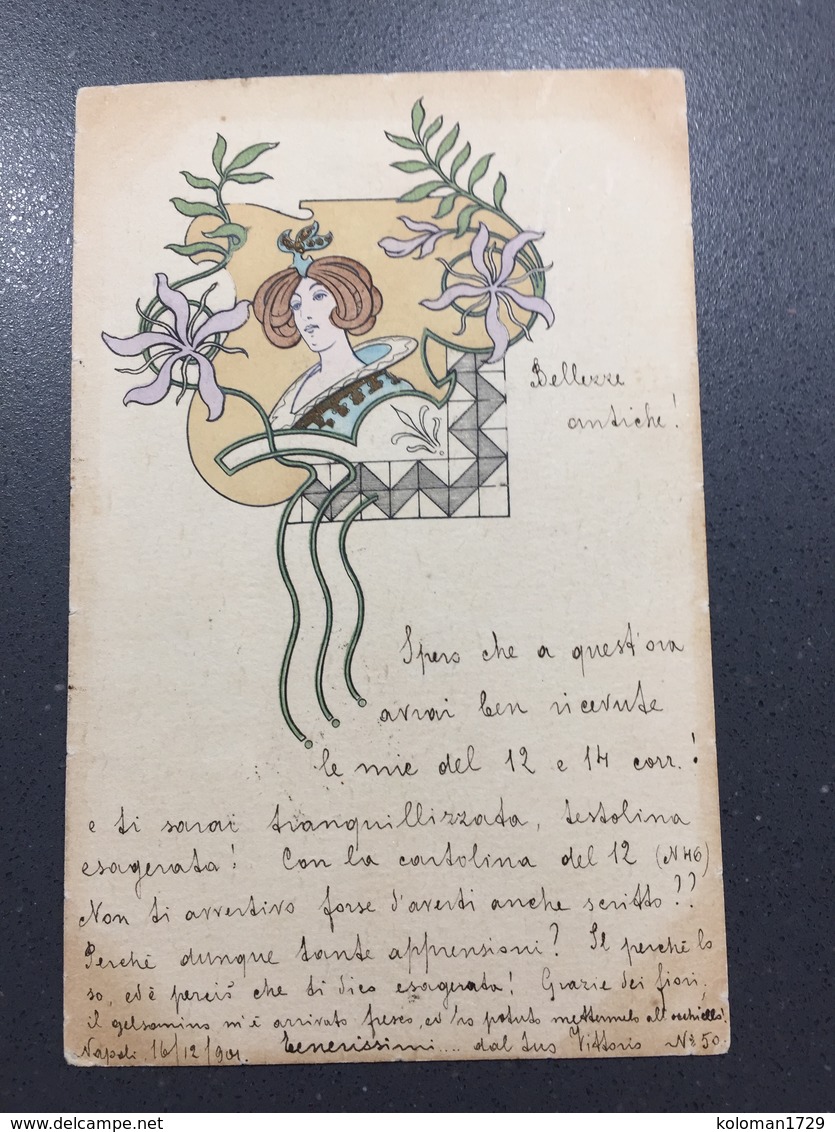 Bellezze
antiche!
Spero che a quest'ora
avrai ben ricevute
le mie del 12 e 14 corr.!
e ti sarai tranquillizzata, testolina
esagerata! Con la cartolina del 12 (N 46)
Non ti avvertivo forse d'averti anche scritto??
Perché dunque tante apprensioni? Il perché lo
so, ed è perciò che ti dico esagerata! Grazie dei fiori;
il gelsomino m'è arrivato fresco, ed ho potuto mettermelo all'occhiello.
Napoli, 16/12/901. Tenerissimi.... dal tuo Vittorio No 50.
© www.delcampe.net
koloman1729